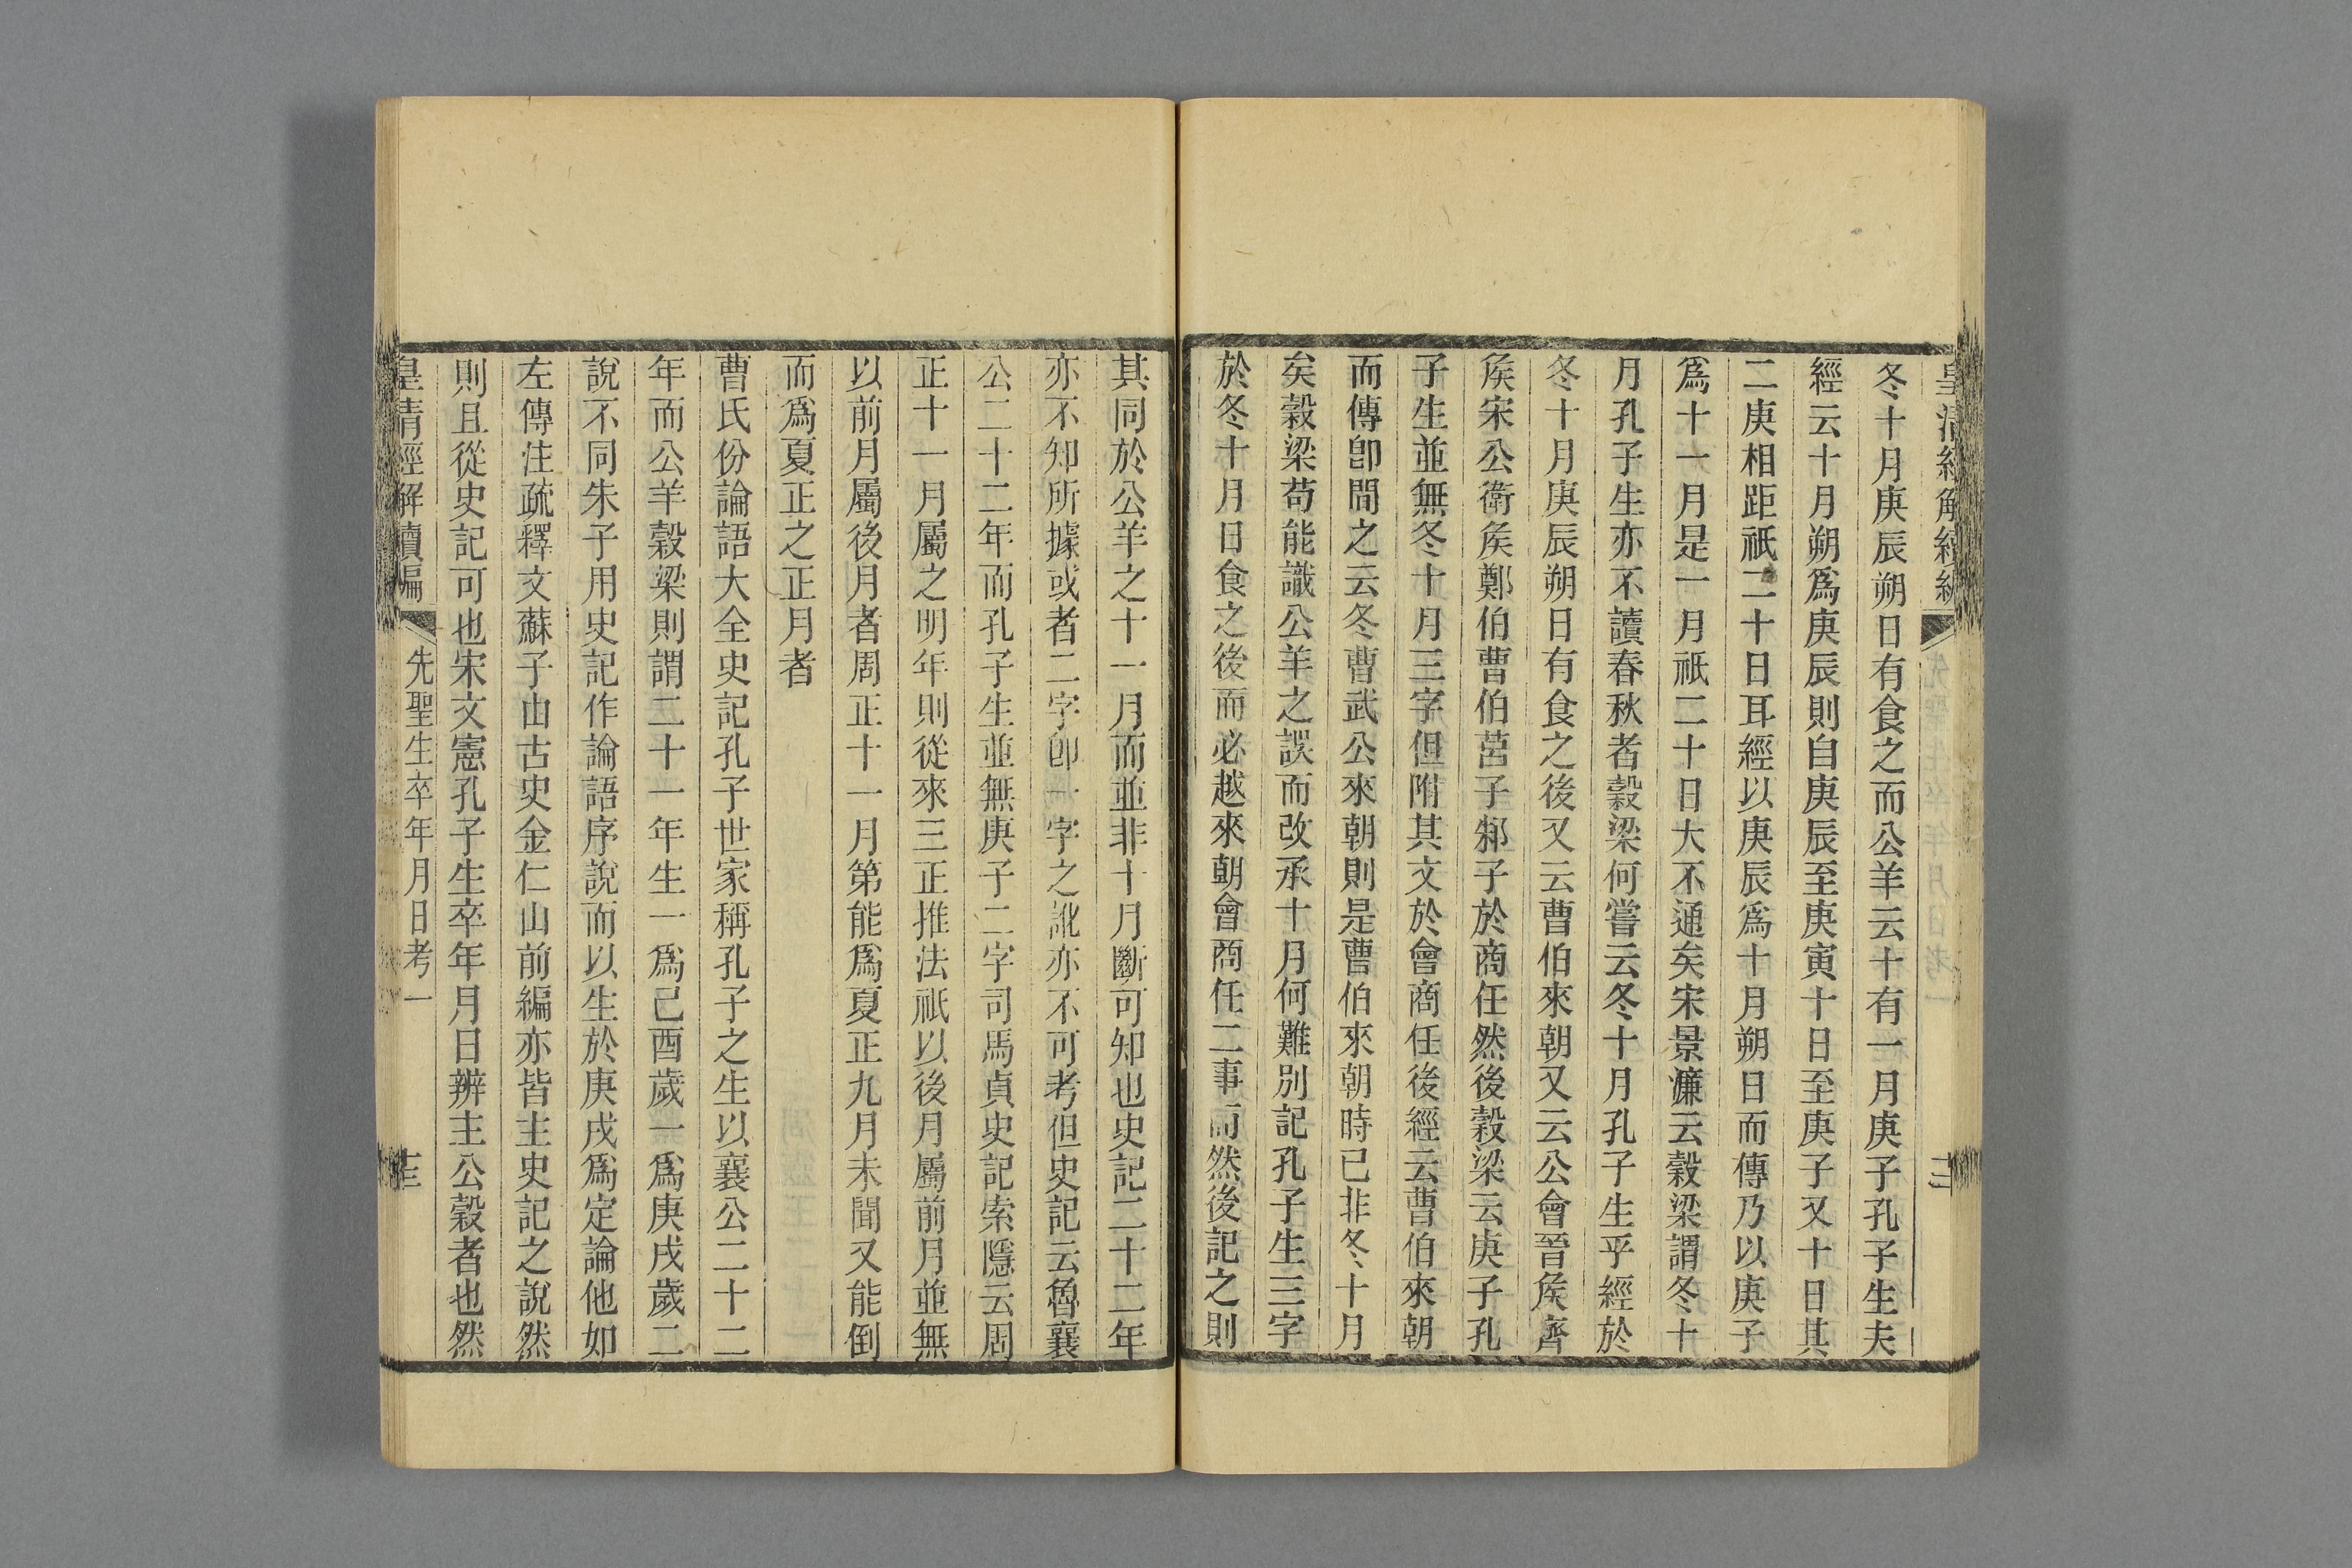 冬十月庚辰朔日有食之而公羊云十有一月庚子孔子生夫
經云十月朔爲庚辰則自庚辰至庚寅十日至庚子又十日其
二庚相距祇二十日耳經以庚辰爲十月朔日而傳乃以庚子
爲十一月是一月祇二十日大不通矣宋景濂云穀梁謂冬十
月孔子生亦不讀春秋者穀梁何嘗云冬十月孔子生乎經於
冬十月庚辰朔日有食之後又云曹伯來朝又云公會晉矦齊
矦宋公衛矦鄭伯曹伯莒子邾子於商任然後穀梁云庚子孔
子生並無冬十月三字但附其文於會商任後經云曹伯來朝
而傳卽間之云冬曹武公來朝則是曹伯來朝時已非冬十月
矣穀梁苟能識公羊之誤而改承十月何難別記孔子生三字
於冬十月日食之後而必越來朝會商任二事而然後記之則
其同於公羊之十一月而並非十月斷可知也史記二十二年
亦不知所據或者二字卽一字之訛亦不可考但史記云魯襄
公二十二年而孔子生並無庚子二字司馬貞史記索隱云周
正十一月屬之明年則從來三正推法祇以後月屬前月並無
以前月屬後月者周正十一月第能爲夏正九月未聞又能倒
而爲夏正之正月者
曹氏份論語大全史記孔子世家稱孔子之生以襄公二十二
年而公羊穀梁則謂二十一年生一爲己酉歲一爲庚戌歲二
說不同朱子用史記作論語序說而以生於庚戌爲定論他如
左傳注疏釋文蘇子由古史金仁山前編亦皆主史記之說然
則且從史記可也宋文憲孔子生卒年月日辨主公穀者也然
皇清經解續編　先聖生卒年月日考一